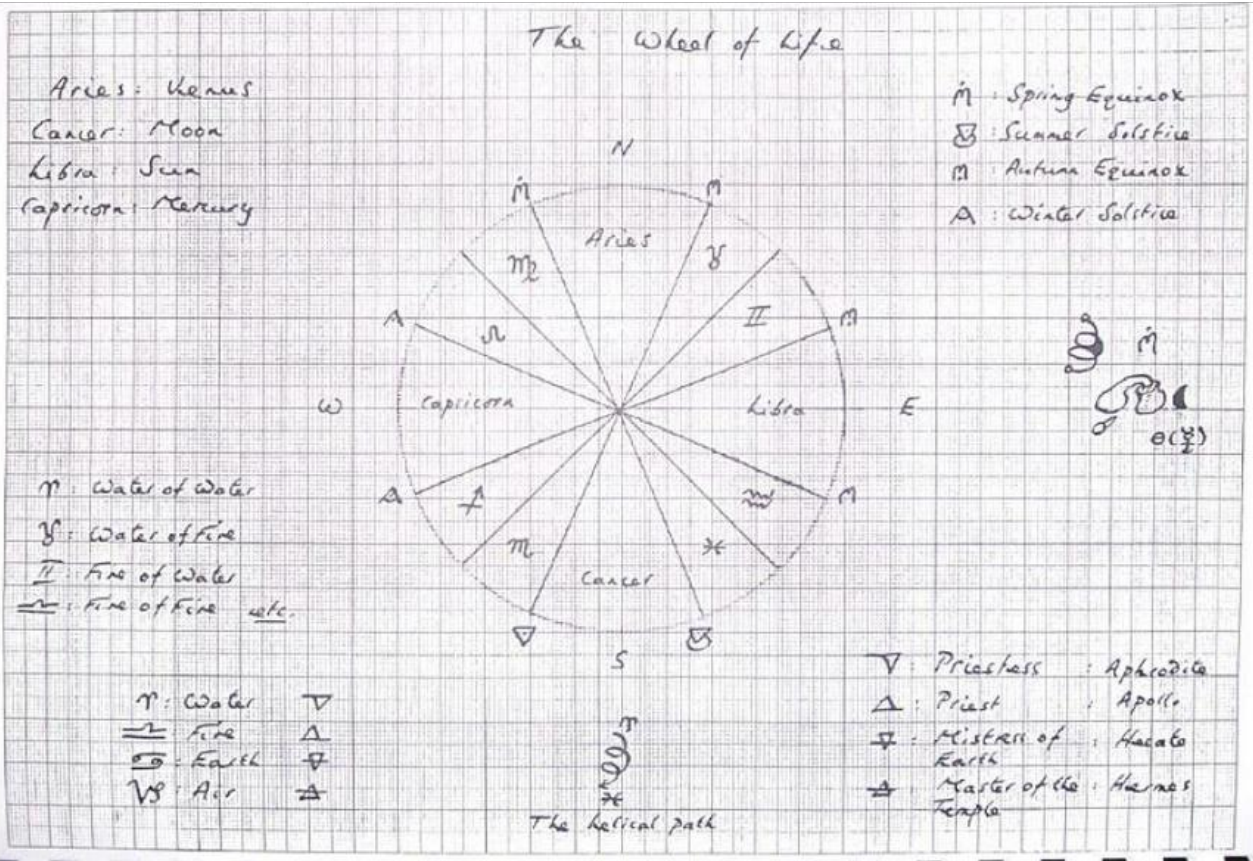 The Wheel of Life
Aries: Venus
Cancer: Moon
Libra: Sun
Capricorn: Mercury
: Spring Equinox
: Summer Solstice
: Autumn Equinox
: Winter Solstice
N
Aries
♍
♉
♌
♊
W
Capricorn
Libra
E
♐
♒
♏
♓
Cancer
S
♈: Water of Water
♉: Water of Fire
♊: Fire of Water
♎: Fire of Fire etc.
♈: Water ▽
♎: Fire △
♋: Earth 🜃
♑: Air 🜁
▽: Priestess : Aphrodite
△: Priest : Apollo
🜃: Mistress of : Hecate
Earth
🜁: Master of the : Hermes
Temple
♈
♓
The helical path